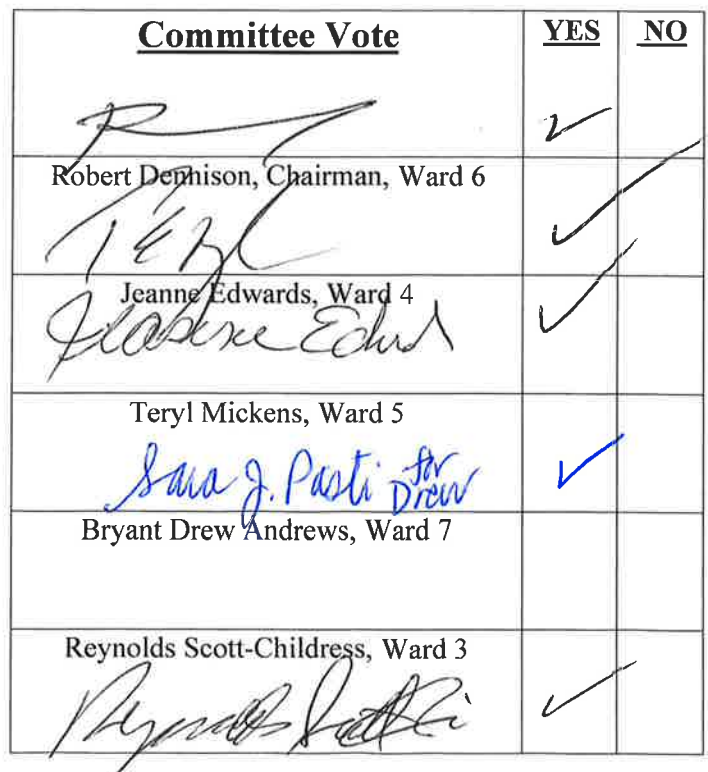 Committee Vote YES NO
✓
Robert Dennison, Chairman, Ward 6
✓
Jeanne Edwards, Ward 4
✓
Teryl Mickens, Ward 5
Sara J. Pasti for Drew ✓
Bryant Drew Andrews, Ward 7
Reynolds Scott-Childress, Ward 3
✓